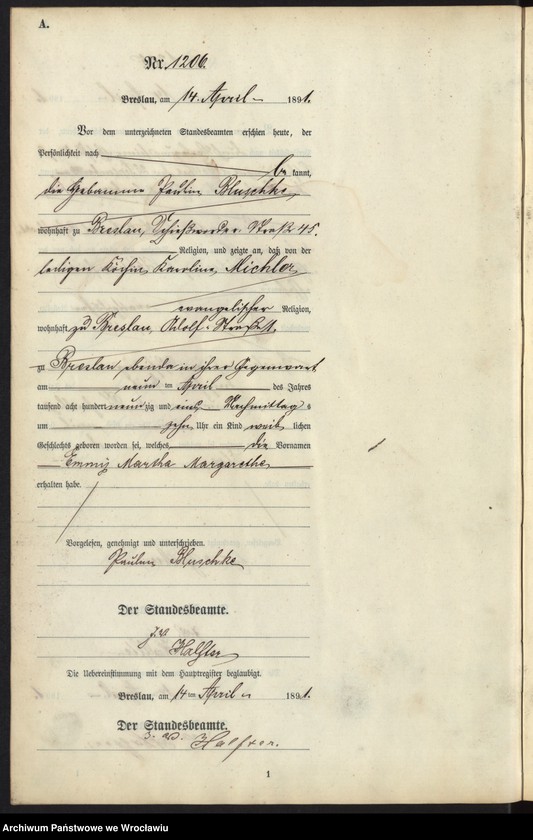 A.
Nr. 1206.
Breslau, am 14. April 1891.
Vor dem unterzeichneten Standesbeamten erschien heute, der
Persönlichkeit nach
be kannt,
die Hebamme Pauline Bluschke,
wohnhaft zu Breslau, Schießwerder Straße 45,
Religion, und zeigte an, daß von der
ledigen Köchin Karoline Michler,
evangelischer Religion,
wohnhaft zu Breslau, Adolf-Straße
zu Breslau ebenda in ihrer Gegenwart
am neun ten April des Jahres
tausend acht hundert neun zig und eins Nachmittag s
um zehn Uhr ein Kind weib lichen
Geschlechts geboren worden sei, welches die Vornamen
Emmy Martha Margarethe
erhalten habe.
Vorgelesen, genehmigt und unterschrieben.
Pauline Bluschke
Der Standesbeamte.
J. V.
Halfter
Die Uebereinstimmung mit dem Hauptregister beglaubigt.
Breslau, am 14 ten April 1891.
Der Standesbeamte.
J. V. Halfter.
1
Archiwum Państwowe we Wrocławiu